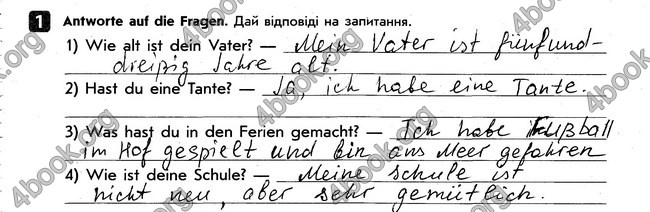 1 Antworte auf die Fragen. Дай відповіді на запитання.
1) Wie alt ist dein Vater? — Mein Vater ist fünfund-
dreißig Jahre alt.
2) Hast du eine Tante? — Ja, ich habe eine Tante.
3) Was hast du in den Ferien gemacht? — Ich habe Fußball
im Hof gespielt und bin ans Meer gefahren
4) Wie ist deine Schule? — Meine Schule ist
nicht neu, aber sehr gemütlich.
4book.org